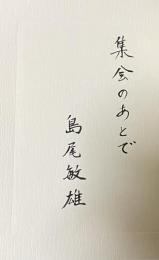 集会のあとで
島尾敏雄